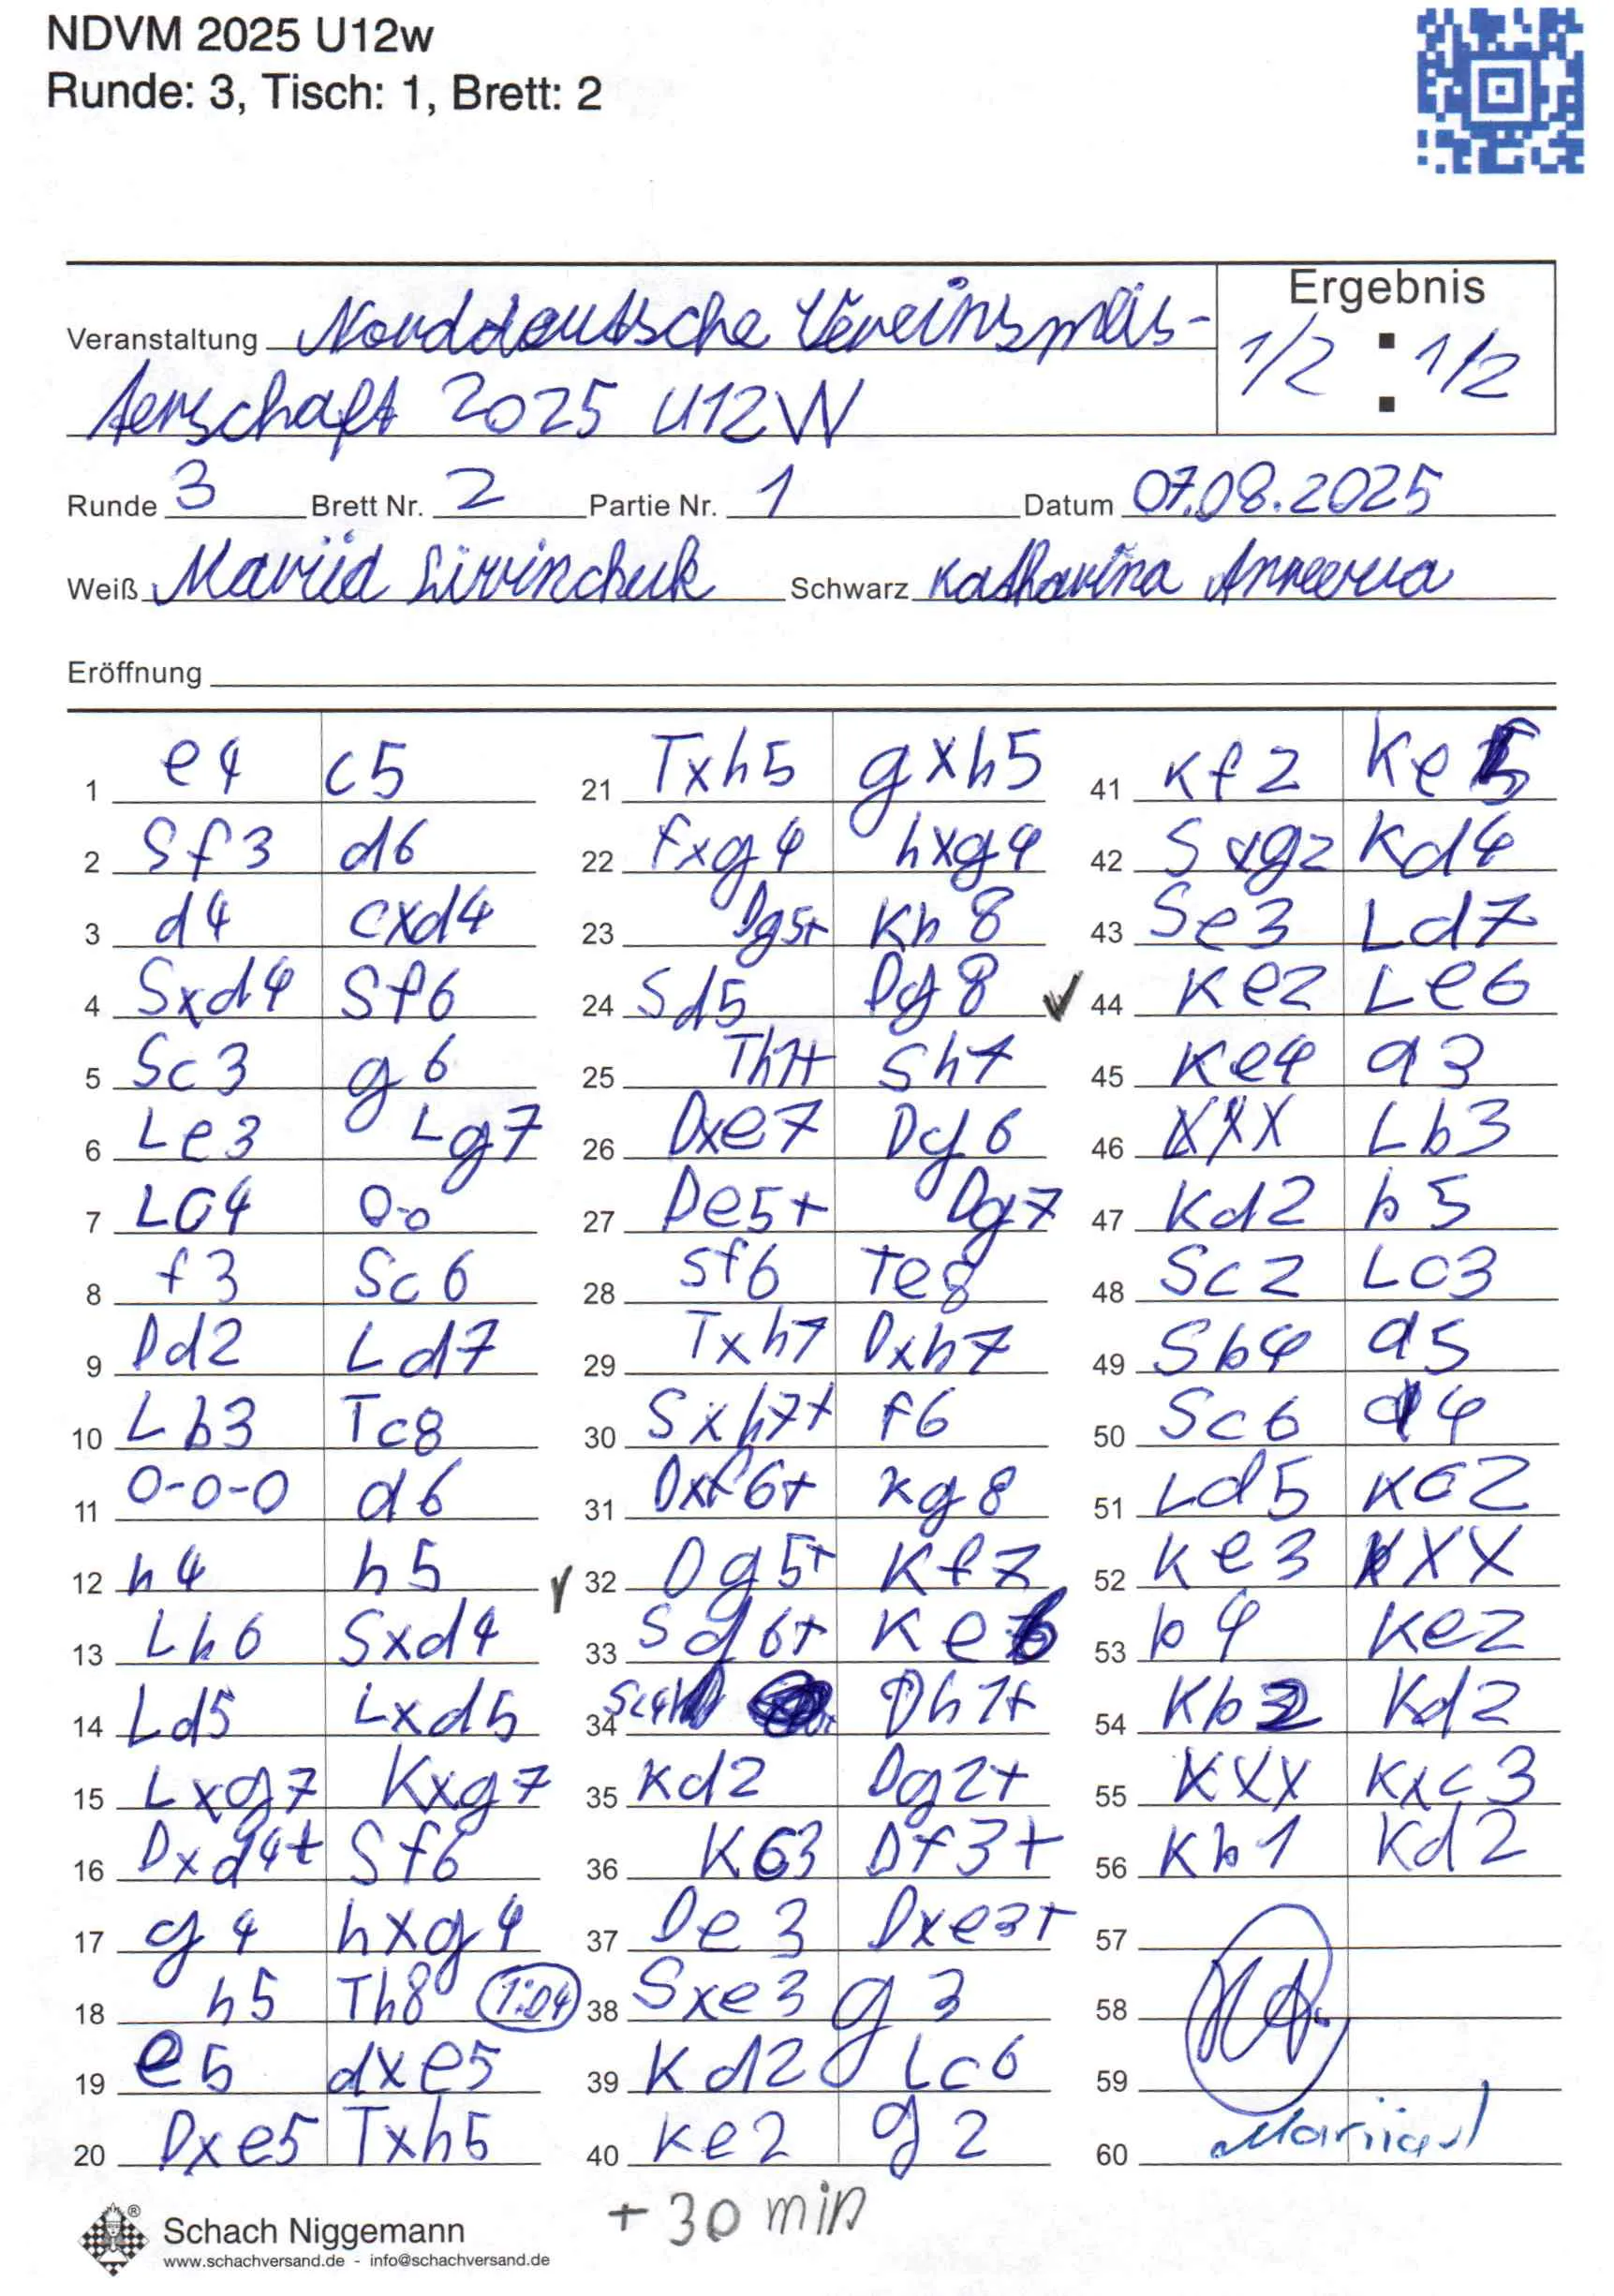 NDVM 2025 U12w
Runde: 3, Tisch: 1, Brett: 2
Veranstaltung Norddeutsche Vereinsmeis-
terschaft 2025 U12W
Ergebnis
1/2 : 1/2
Runde 3 Brett Nr. 2 Partie Nr. 1 Datum 07.08.2025
Weiß Mariid Schwarz Katharina
Eröffnung
1 e4 c5
2 Sf3 d6
3 d4 cxd4
4 Sxd4 Sf6
5 Sc3 g6
6 Le3 Lg7
7 LC4 0-0
8 f3 Sc6
9 Dd2 Ld7
10 Lb3 Tc8
11 0-0-0 a6
12 h4 h5
13 Lh6 Sxd4
14 Ld5 Lxd5
15 Lxg7 Kxg7
16 Dxd4+ Sf6
17 g4 hxg4
18 h5 Th8 1:04
19 e5 dxe5
20 Dxe5 Txh5
21 Txh5 gxh5
22 fxg4 hxg4
23 Dg5+ Kh8
24 Sd5 Dg8
25 Th1+ Sh7
26 Dxe7 Dg6
27 De5+ Dg7
28 Sf6 Te8
29 Txh7 Dxh7
30 Sxh7+ f6
31 Dxf6+ Kg8
32 Dg5+ Kf7
33 Sg6+ Ke6
34 Dh1+
35 Kd2 Dg2+
36 KC3 Df3+
37 De3 Dxe3+
38 Sxe3 g3
39 Kd2 Lc6
40 Ke2 g2
41 Kf2 Ke5
42 Sxg2 Kd4
43 Se3 Ld7
44 Ke2 Le6
45 Ke4 a3
46 XXX Lb3
47 Kd2 b5
48 Sc2 Lc3
49 Sb4 a5
50 Sc6 a4
51 Ld5 KC2
52 Ke3 XXX
53 b4 Ke2
54 Kb2 Kd2
55 XXX Kxc3
56 Kb1 Kd2
57
58
59
60
Mariia
+30 min
Schach Niggemann
www.schachversand.de - info@schachversand.de